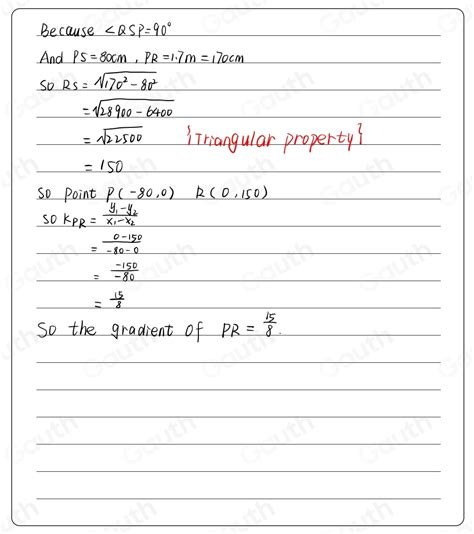 Because ∠QSP=90°
And PS=80cm, PR=1.7m=170cm
So RS=√170²-80²
=√28900-6400
=√22500 {Triangular property}
=150
So point P(-80,0) R(0,150)
So KPR=y₁-y₂/x₁-x₂
=0-150/-80-0
=-150/-80
=15/8
So the gradient of PR=15/8.
Gauth